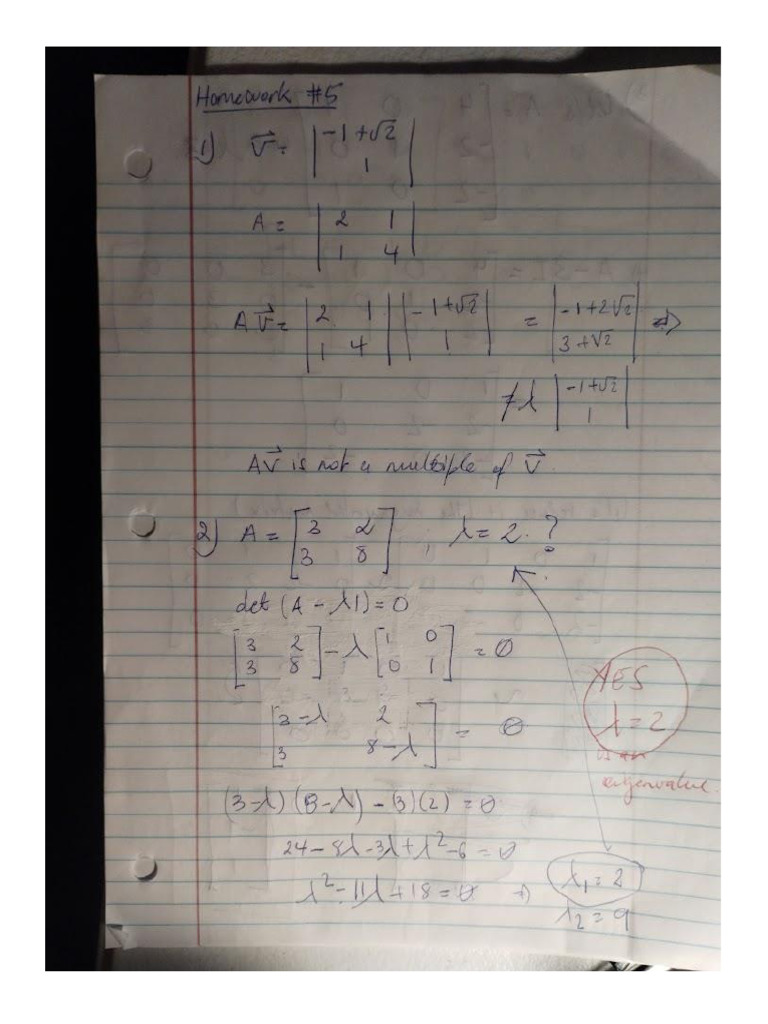 Homework #5
1) v⃗ = |-1+√2
1|
A = |2 1
1 4|
Av⃗ = |2 1| |-1+√2| = |-1+2√2| ⇒
|1 4| |1| |3+√2|
≠ λ |-1+√2
1|
Av⃗ is not a multiple of v⃗.
2) A = [3 2
3 8] , λ = 2. ?
det (A - λI) = 0
[3 2
3 8] - λ [1 0
0 1] = 0
[3-λ 2
3 8-λ] = 0
(3-λ)(8-λ) - (3)(2) = 0
24 - 8λ - 3λ + λ² - 6 = 0
λ² - 11λ + 18 = 0 ⇒ λ₁ = 2
λ₂ = 9
YES
λ = 2
is an
eigenvalue.